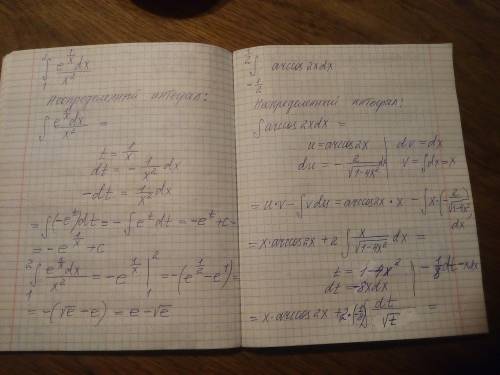 ∫₁² e^(1/x)dx / x²
Неопределенный интеграл:
∫ e^(1/x)dx / x² =
t = 1/x
dt = - 1/x² dx
-dt = 1/x² dx
= ∫(-e^t)dt = -∫e^t dt = -e^t + c =
= -e^(1/x) + c
∫₁² e^(1/x)dx / x² = -e^(1/x) |₁² = -(e^(1/2) - e^1) =
= -(√e - e) = e - √e
∫_(-1/2)^(1/2) arccos2xdx
Неопределенный интеграл:
∫arccos2xdx =
u = arccos2x | dv = dx
du = - 2/√(1-4x²) dx | v = ∫dx = x
= u·v - ∫vdu = arccos2x·x - ∫x·(- 2/√(1-4x²)) dx
= x·arccos2x + 2∫ x/√(1-4x²) dx =
t = 1-4x²
dt = -8xdx | -1/8 dt = xdx
= x·arccos2x + 2·(-1/8)∫ dt/√t =